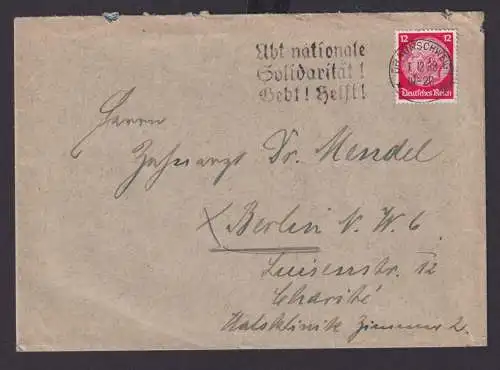 Übt nationale
Solidarität!
Gebt! Helft!
BRAUNSCHWEIG
12 12
Deutsches Reich
Herrn
Zahnarzt Dr. Mendel
Berlin N.W. 6
Luisenstr. 12
Charité
Halsklinik Zimmer 2.